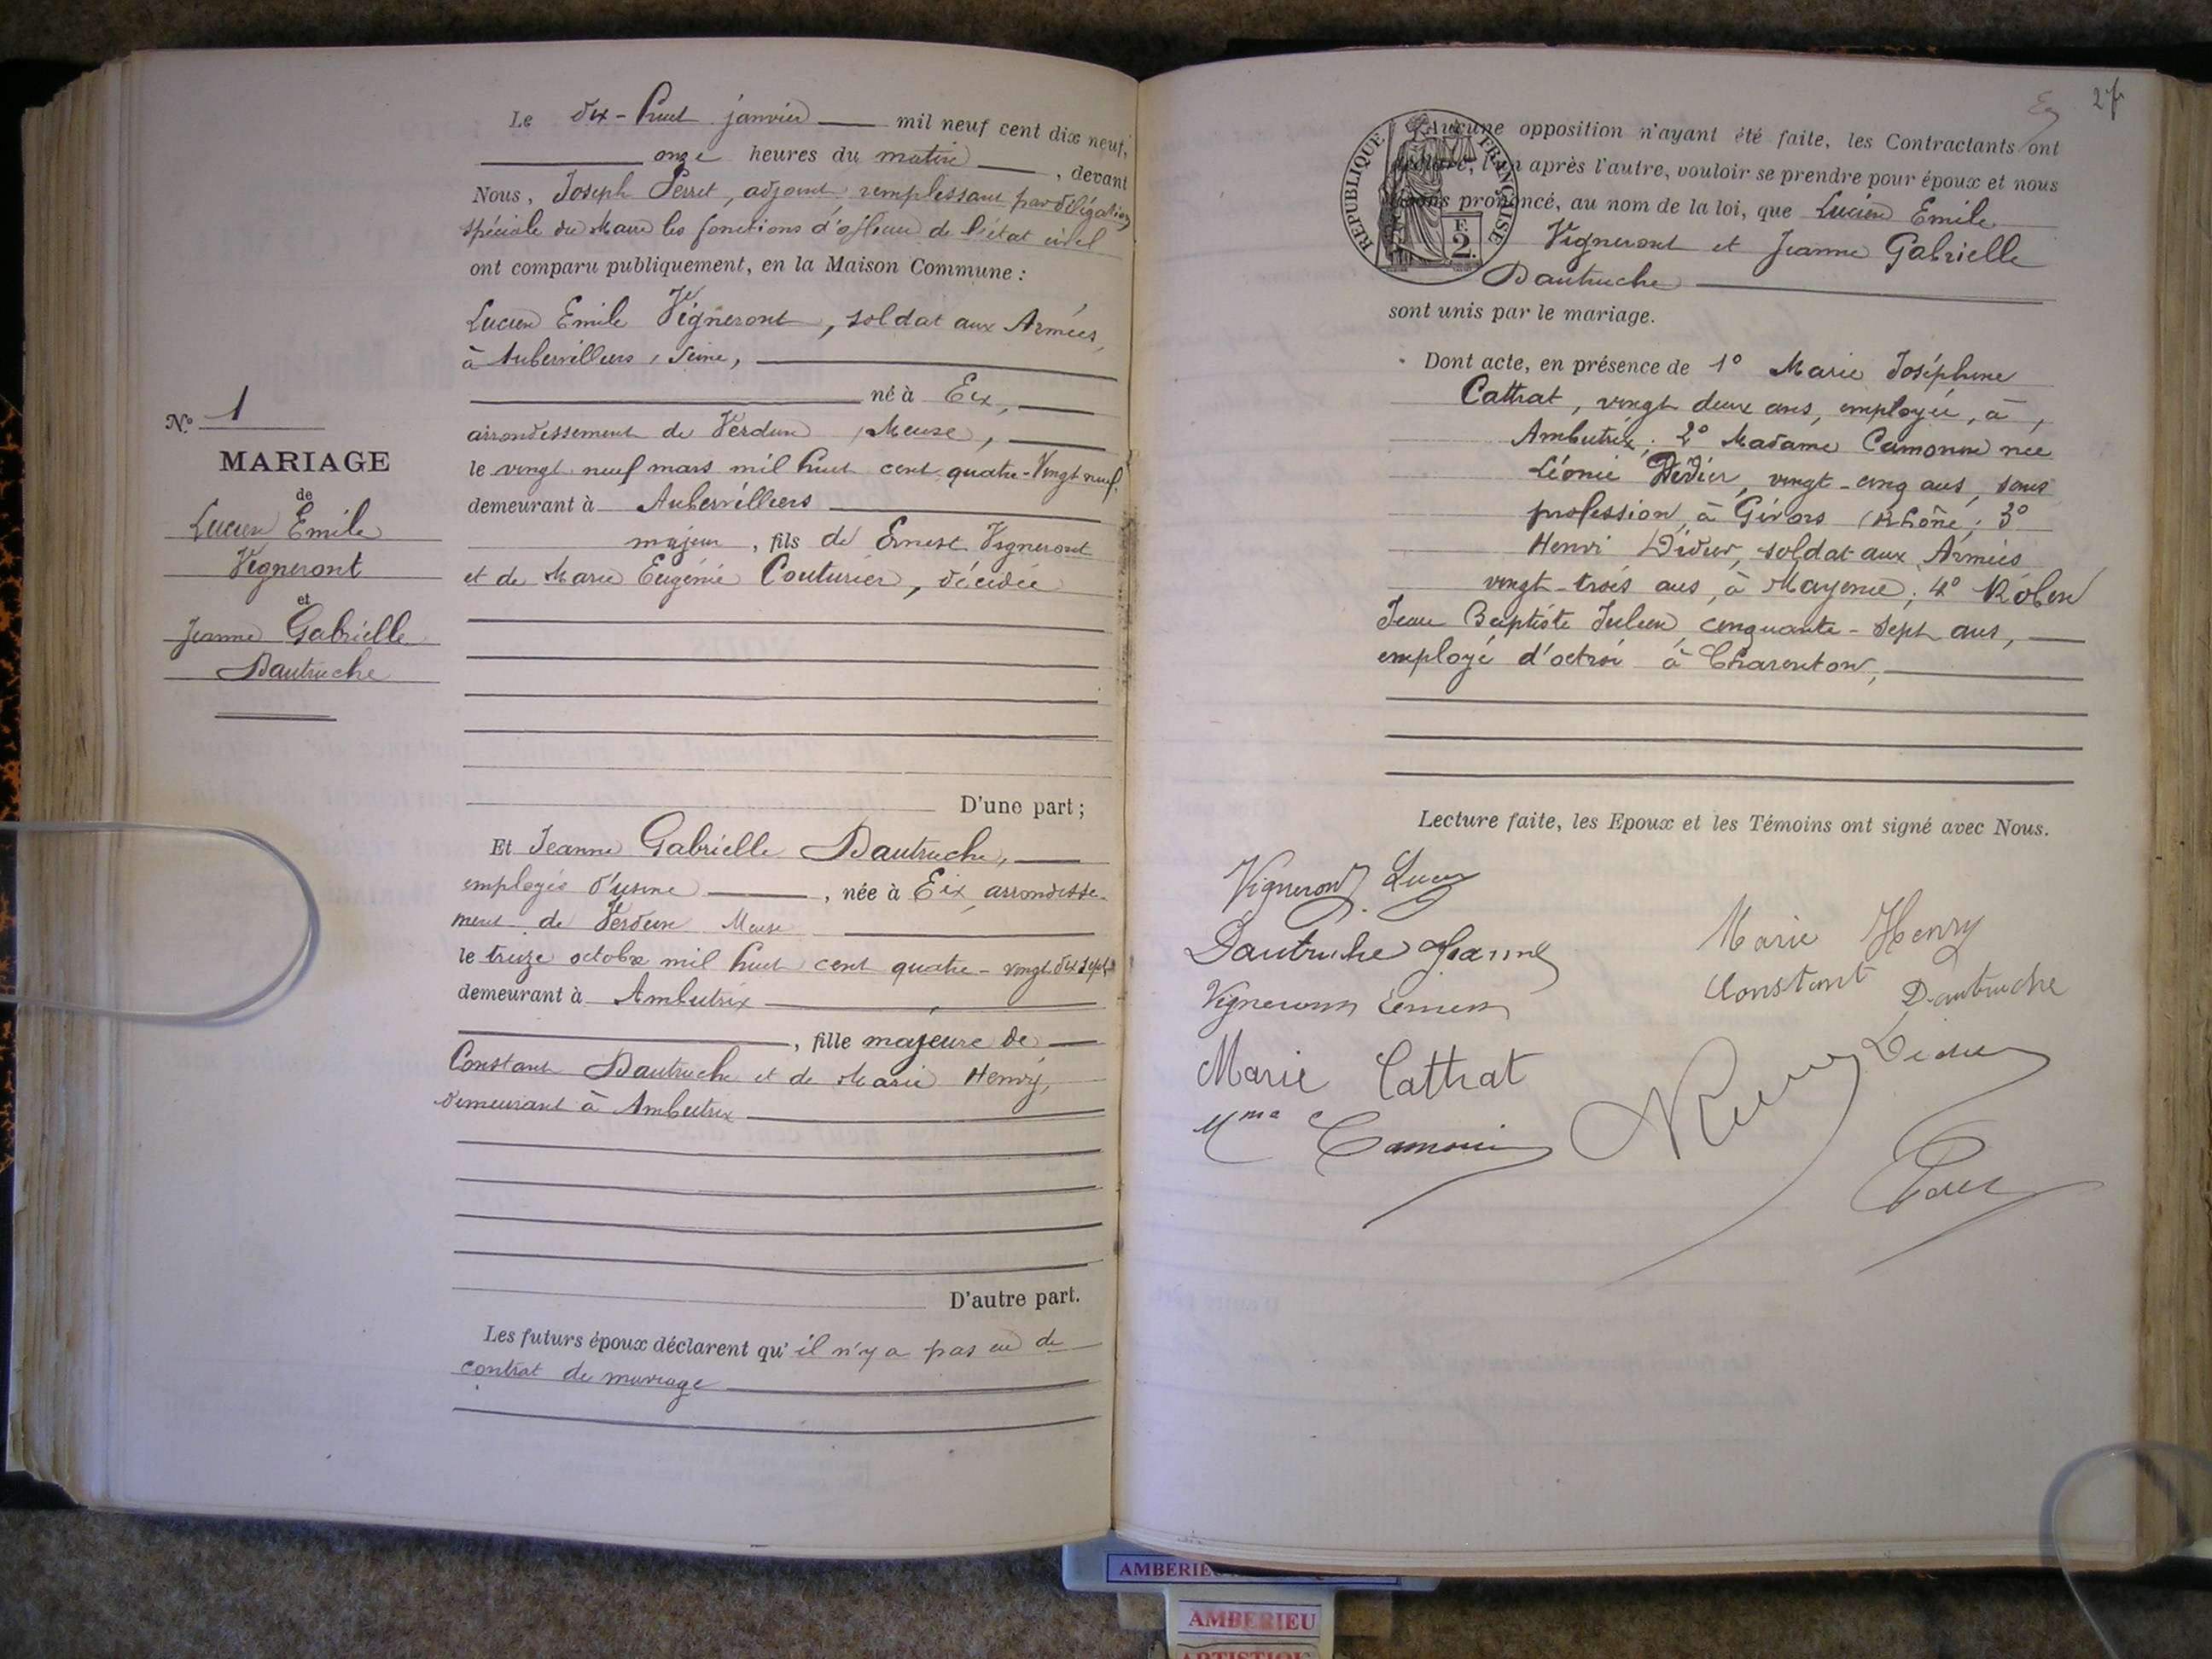 Le dix-huit janvier mil neuf cent dix neuf,
onze heures du matin, devant
Nous, Joseph Perret, adjoint remplissant par délégation
spéciale du Maire les fonctions d'officier de l'état civil
ont comparu publiquement, en la Maison Commune :
Lucien Emile Vigneront, soldat aux Armées,
à Aubervilliers, Seine,
né à Eix,
arrondissement de Verdun (Meuse),
le vingt neuf mars mil huit cent quatre-Vingt neuf,
demeurant à Aubervilliers
majeur, fils de Ernest Vigneront
et de Marie Eugénie Couturier, décédée
N° 1
MARIAGE
de
Lucien Emile
Vigneront
et
Jeanne Gabrielle
Dautruche
D'une part ;
Et Jeanne Gabrielle Dautruche,
employée d'usine, née à Eix, arrondisse-
ment de Verdun Meuse
le treize octobre mil huit cent quatre-vingt dix sept
demeurant à Ambutrix
, fille majeure de
Constant Dautruche et de Marie Henry,
demeurant à Ambutrix
D'autre part.
Les futurs époux déclarent qu' il n'y a pas eu de
contrat de mariage
27
REPUBLIQUE FRANÇAISE
F.
2.
Aucune opposition n'ayant été faite, les Contractants ont
déclaré, l'un après l'autre, vouloir se prendre pour époux et nous
avons prononcé, au nom de la loi, que Lucien Emile
Vigneront et Jeanne Gabrielle
Dautruche
sont unis par le mariage.
Dont acte, en présence de 1° Marie Joséphine
Cattrat, vingt deux ans, employée, à,
Ambutrix; 2° Madame Camonin née
Léonie Didier, vingt-cinq ans, sans
profession, à Givors (Rhône; 3°
Henri Didier, soldat aux Armées
vingt-trois ans, à Mayence; 4°
Jean Baptiste Julien, cinquante-sept ans,
employé d'octroi à Charenton,
Lecture faite, les Epoux et les Témoins ont signé avec Nous.
Vigneront Lucien
Dautruche Jeanne
Marie Henry
Constant Dautruche
Vigneront Ernest
Marie Cattrat
Didier
Mme Camonin
AMBERIEU
AMBERIEU